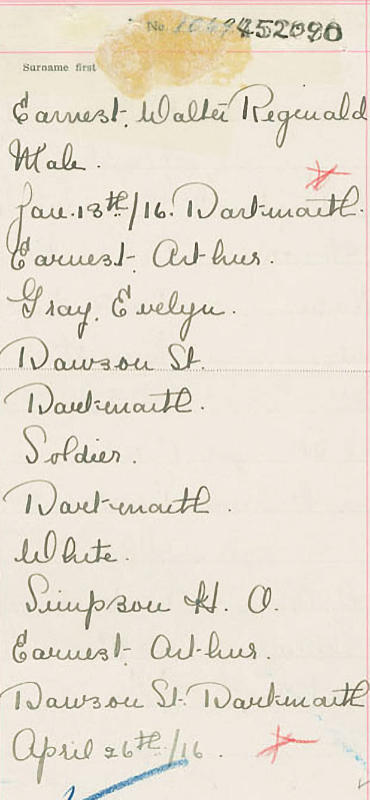 No. 452090
Surname first
Earnest, Walter Reginald
Male.
Jan. 13th/16. Dartmouth.
Earnest Arthur.
Gray, Evelyn.
Dawson St.
Dartmouth.
Soldier.
Dartmouth.
White.
Simpson H. O.
Earnest Arthur.
Dawson St. Dartmouth
April 26th/16.